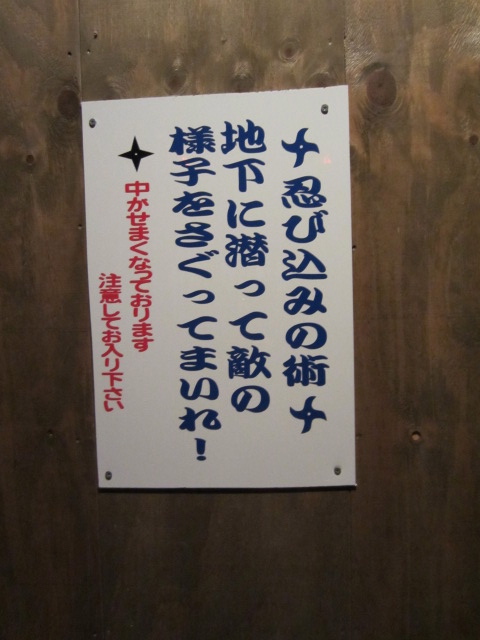 忍び込みの術
地下に潜って敵の
様子をさぐってまいれ!
中がせまくなっております
注意してお入り下さい